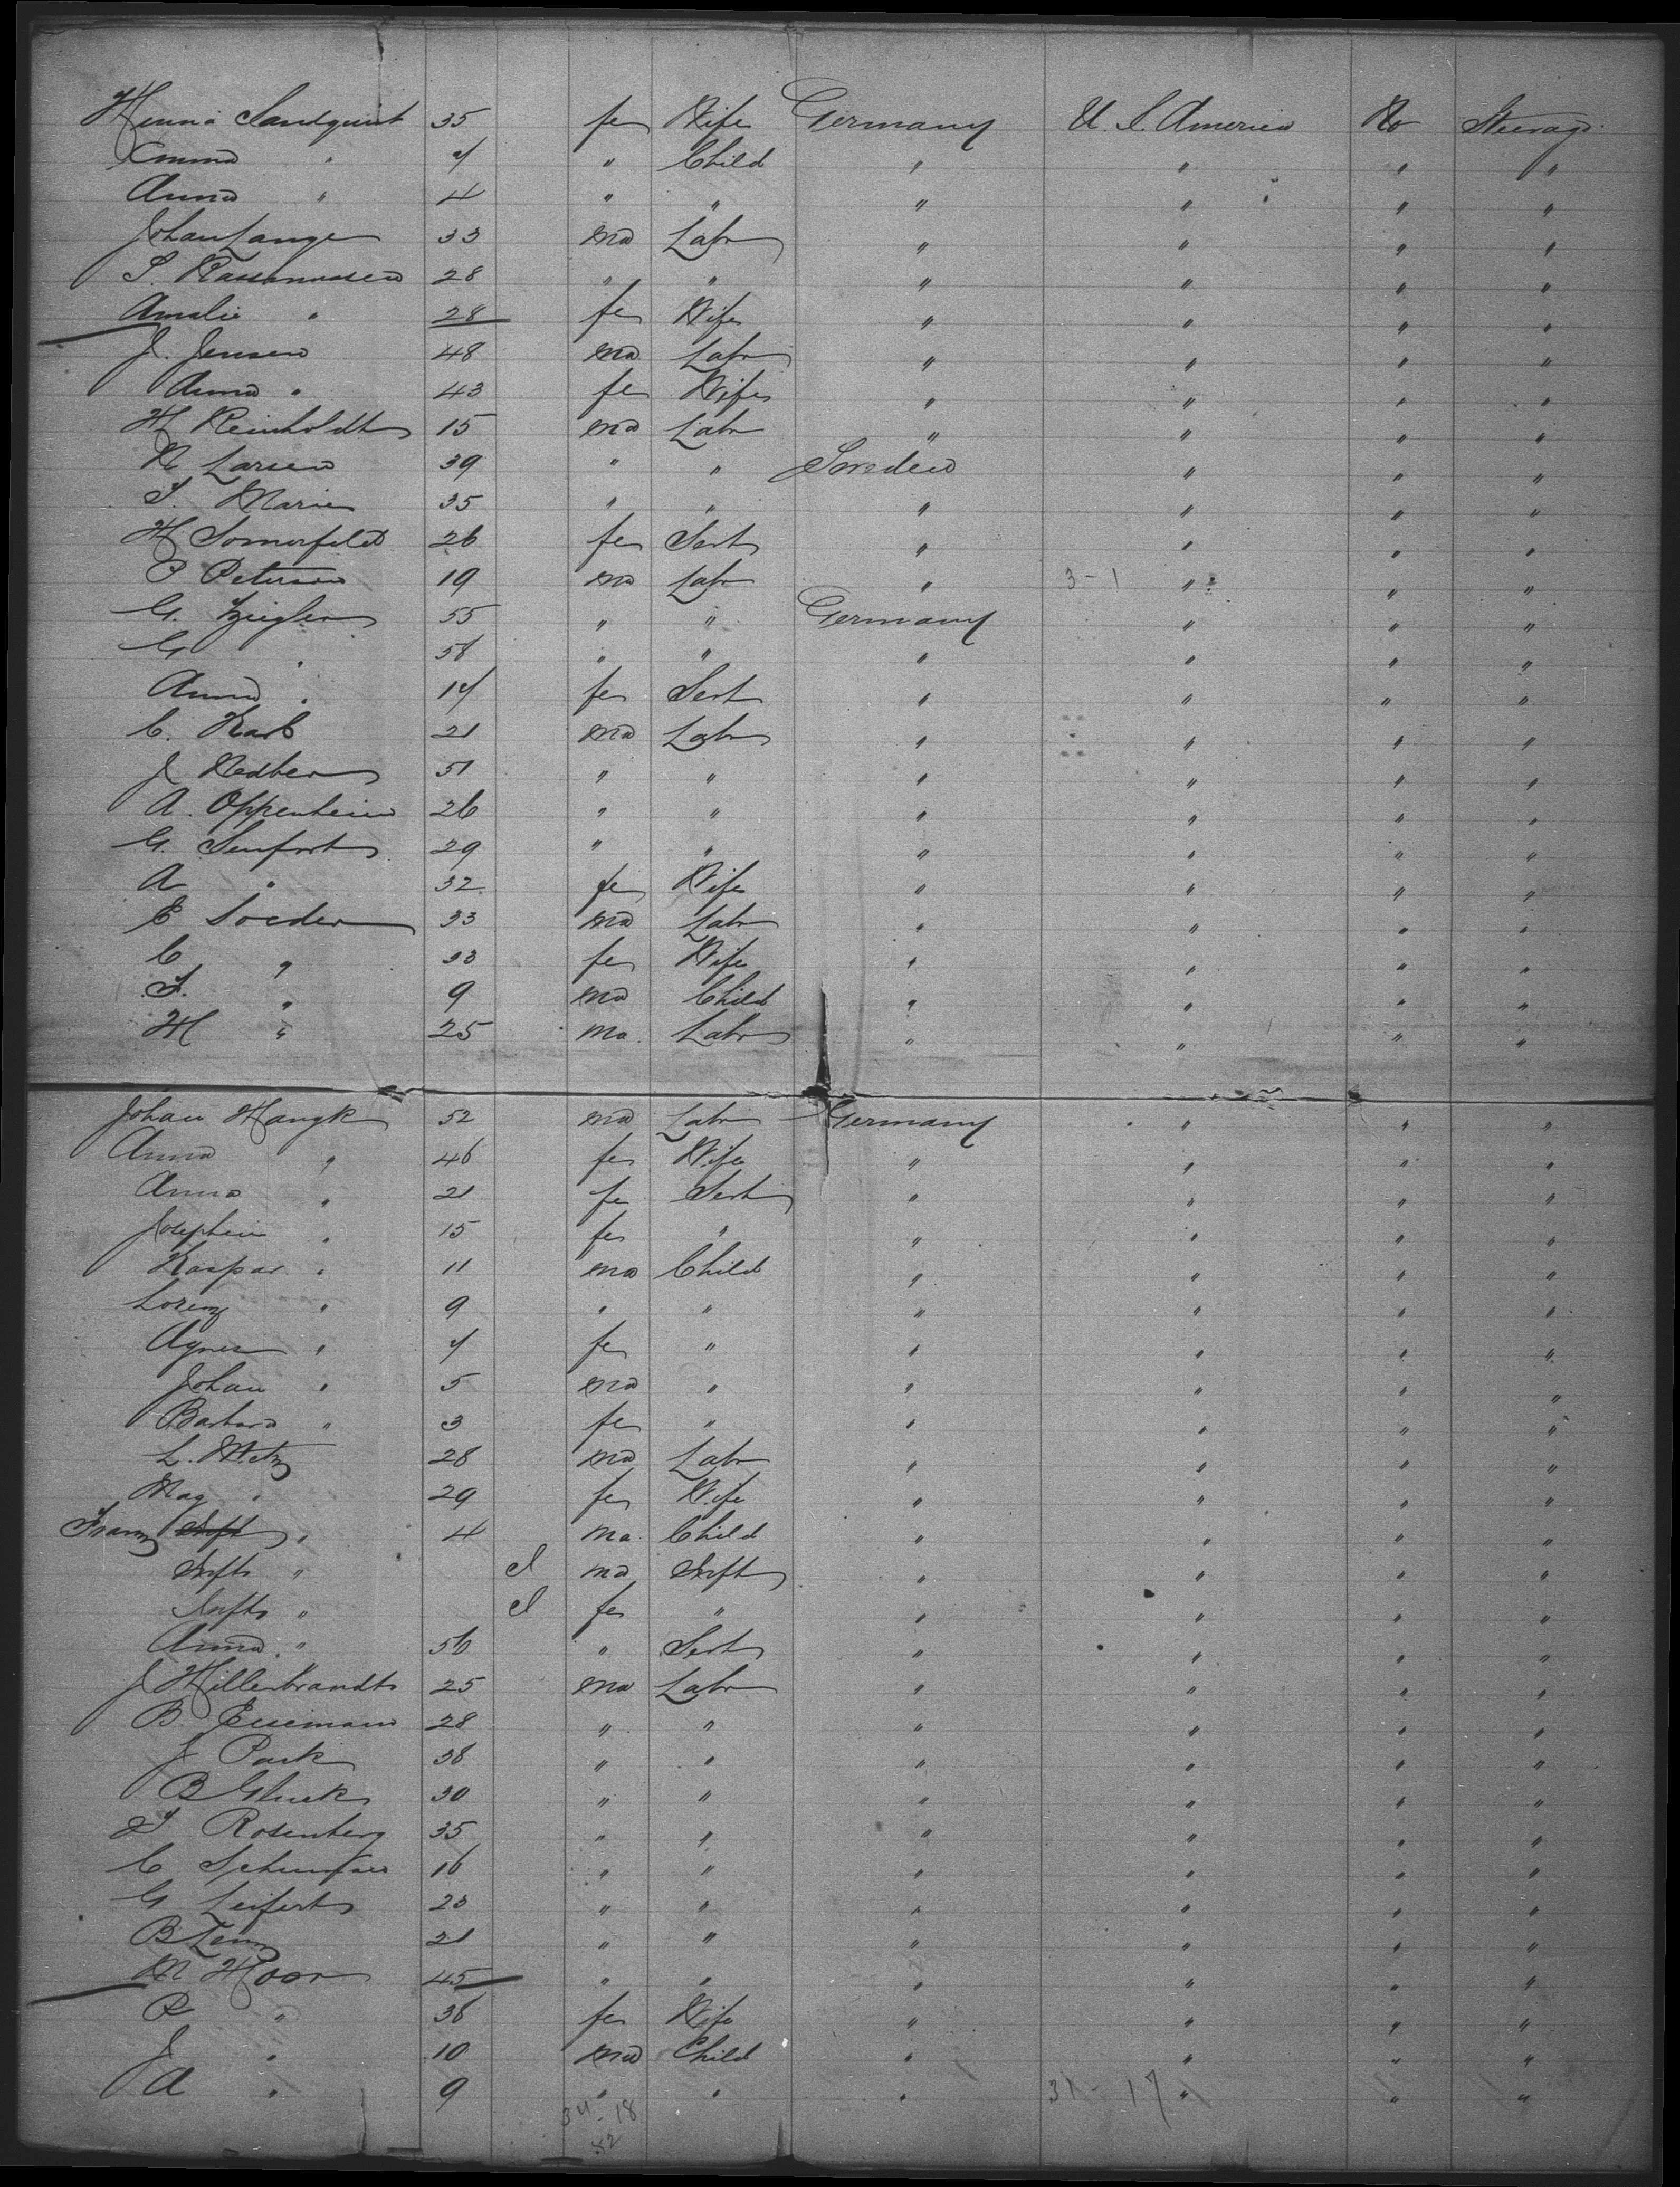 Henna Sandquist 35 fe Wife Germany U. S. America No Steerage
Emma " 7 " Child " " " "
Anna " 4 " " " " " "
Johan Lange 33 ma Labr " " " "
S. Rassmussen 28 " " " " " "
Amalie " 28 fe Wife " " " "
J. Jensen 48 ma Labr " " " "
Anna " 43 fe Wife " " " "
H Reinholdt 15 ma Labr " " " "
N Larsen 39 " " Sweden " " "
S. Marie 35 " " " " " "
H Somerfeld 26 fe Sert " " " "
P Peterson 19 ma Labr " 3-1 " " "
G. Zeigler 55 " " Germany " " "
G " 58 " " " " " "
Anna " 17 fe Sert " " " "
C. Karb 21 ma Labr " " " "
J 51 " " " " " "
A. Oppenheim 26 " " " " " "
G. Senfort 29 " " " " " "
A " 32 fe Wife " " " "
E Soeder 33 ma Labr " " " "
C " 33 fe Wife " " " "
F. " 9 ma Child " " " "
H " 25 ma. Labr " " " "
Johan Hangk 52 ma Labr Germany " " "
Anna " 46 fe Wife " " " "
Anna " 21 fe Sert " " " "
Josephin " 15 fe " " " " "
Kaspar " 11 ma Child " " " "
Lorenz " 9 " " " " " "
Agnes " 7 fe " " " " "
Johan " 5 ma " " " " "
Barbara " 3 fe " " " " "
L. Metz 28 ma Labr " " " "
Mag " 29 fe Wife " " " "
Franz Inft " 4 ma. Child " " " "
Inft " I ma Inft " " " "
Inft " I fe " " " " "
Anna " 56 " Sert " " " "
J Hillenbrandt 25 ma Labr " " " "
B. Eisemann 28 " " " " " "
J Park 38 " " " " " "
B Gluck 30 " " " " " "
S Rosenberg 35 " " " " " "
C 16 " " " " " "
G Leifert 23 " " " " " "
B Zenz 21 " " " " " "
M Hoor 45 " " " " " "
R " 36 fe Wife " " " "
J " 10 ma Child " " " "
A " 9 " " " 31-17 " " "
34-18
52